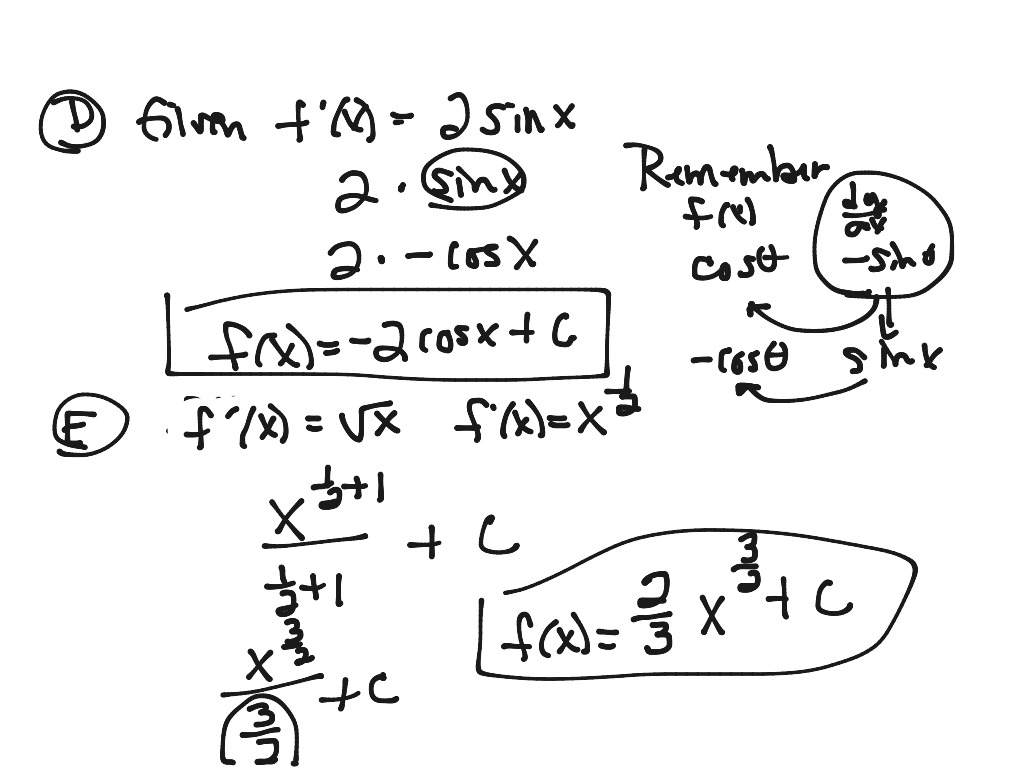 D Given f'(x) = 2 sin x
2 · sin x
2 · - cos x
f(x) = -2 cos x + C
Remember
f(x) dy/dx
cos θ - sin θ
- cos θ sin x
E f'(x) = √x f'(x) = x^(1/2)
x^(1/2 + 1) / (1/2 + 1) + C
x^(3/2) / (3/2) + C
f(x) = 2/3 x^(3/2) + C